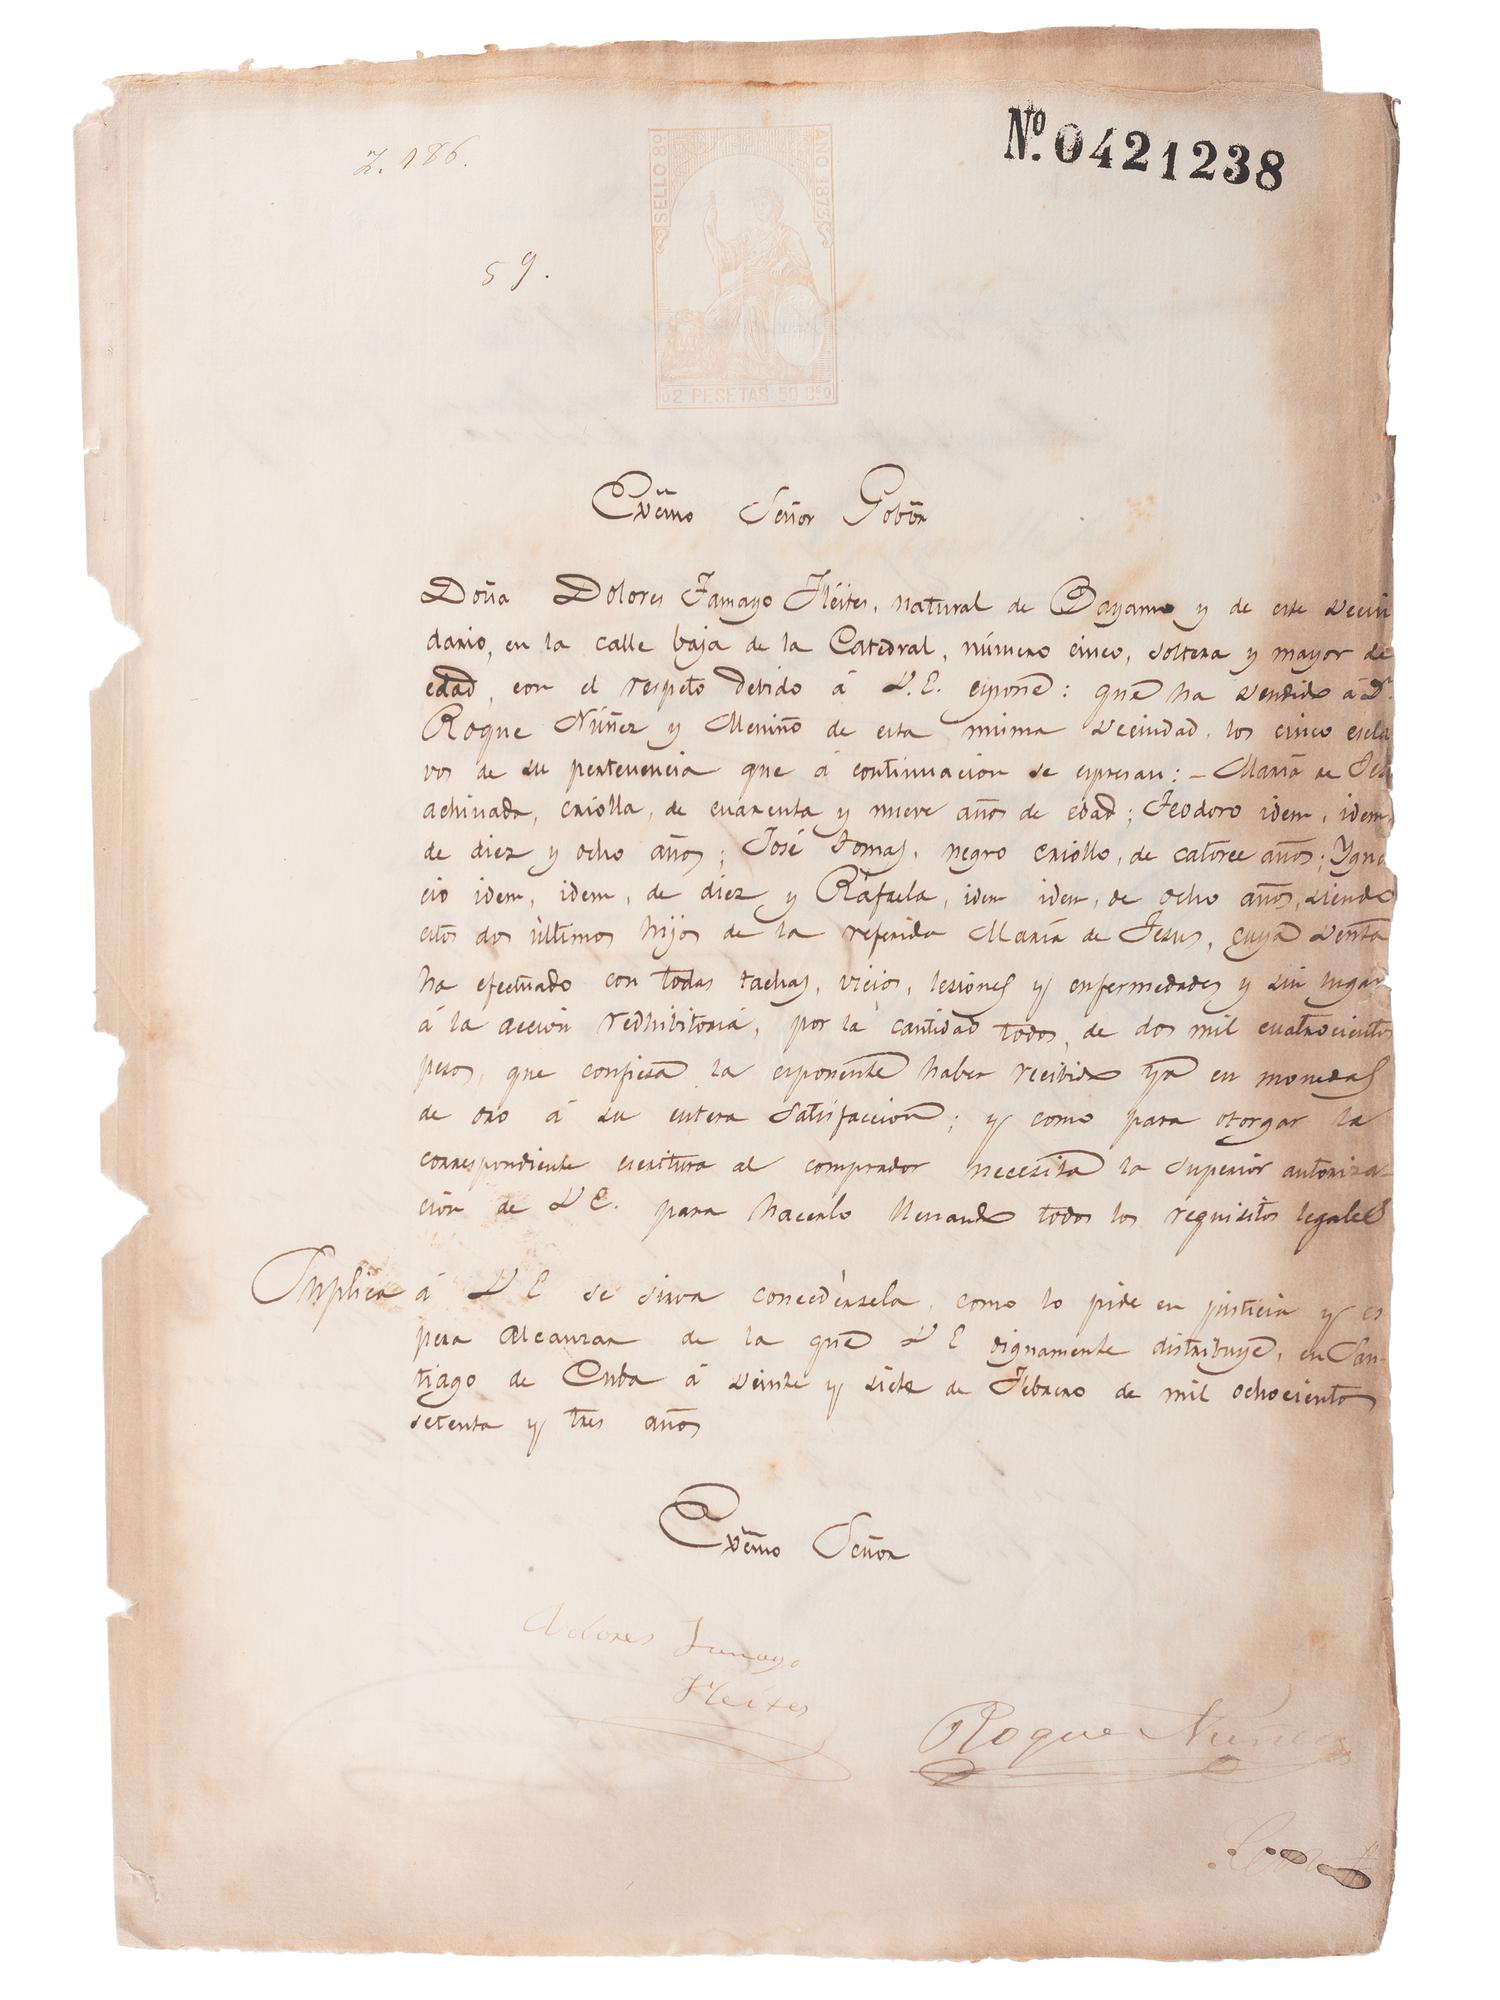 Nº. 0421238
186.
59.
SELLO 8º
AÑO 1873
2 PESETAS 50 Cs.
Exc̃mo Señor Gobõr
Doña Dolores Tamayo Fléites, natural de Bayamo y de este vecin
dario, en la calle baja de la Catedral, número cinco, soltera y mayor de
edad, con el respeto debido á V.E. espone: que ha vendido á Dn.
Roque Núñez y Meriño de esta misma veciudad, los cinco escla
vos de su pertenencia que á continuacion se espresan: - María de Jesus
achinada, criolla, de cuarenta y nueve años de edad; Teodoro idem, idem,
de diez y ocho años; José Tomas, negro criollo, de catorce años; Ygna
cio idem, idem, de diez y Rafaela, idem idem, de ocho años, siendo
estos dos últimos hijos de la referida María de Jesus, cuya venta
ha efectuado con todas tachas, vicios, lesiones y enfermedades y sin lugar
á la accion redhibitoria, por la cantidad todos, de dos mil cuatrocientos
pesos, que confiesa la esponente haber recibido ya en monedas
de oro á su entera satisfaccion; y como para otorgar la
correspondiente escritura al comprador necesita la superior autoriza-
cion de V.E. para hacerlo llenando todos los requisitos legales
Suplica á V E se sirva concedérsela, como lo pide en justicia y es
pera alcanzar de la que V E dignamente distribuye, en San-
tiago de Cuba á veinte y siete de Febrero de mil ochocientos
setenta y tres años
Exc̃mo Señor
Dolores Tamayo
Fleites
Roque Núñez